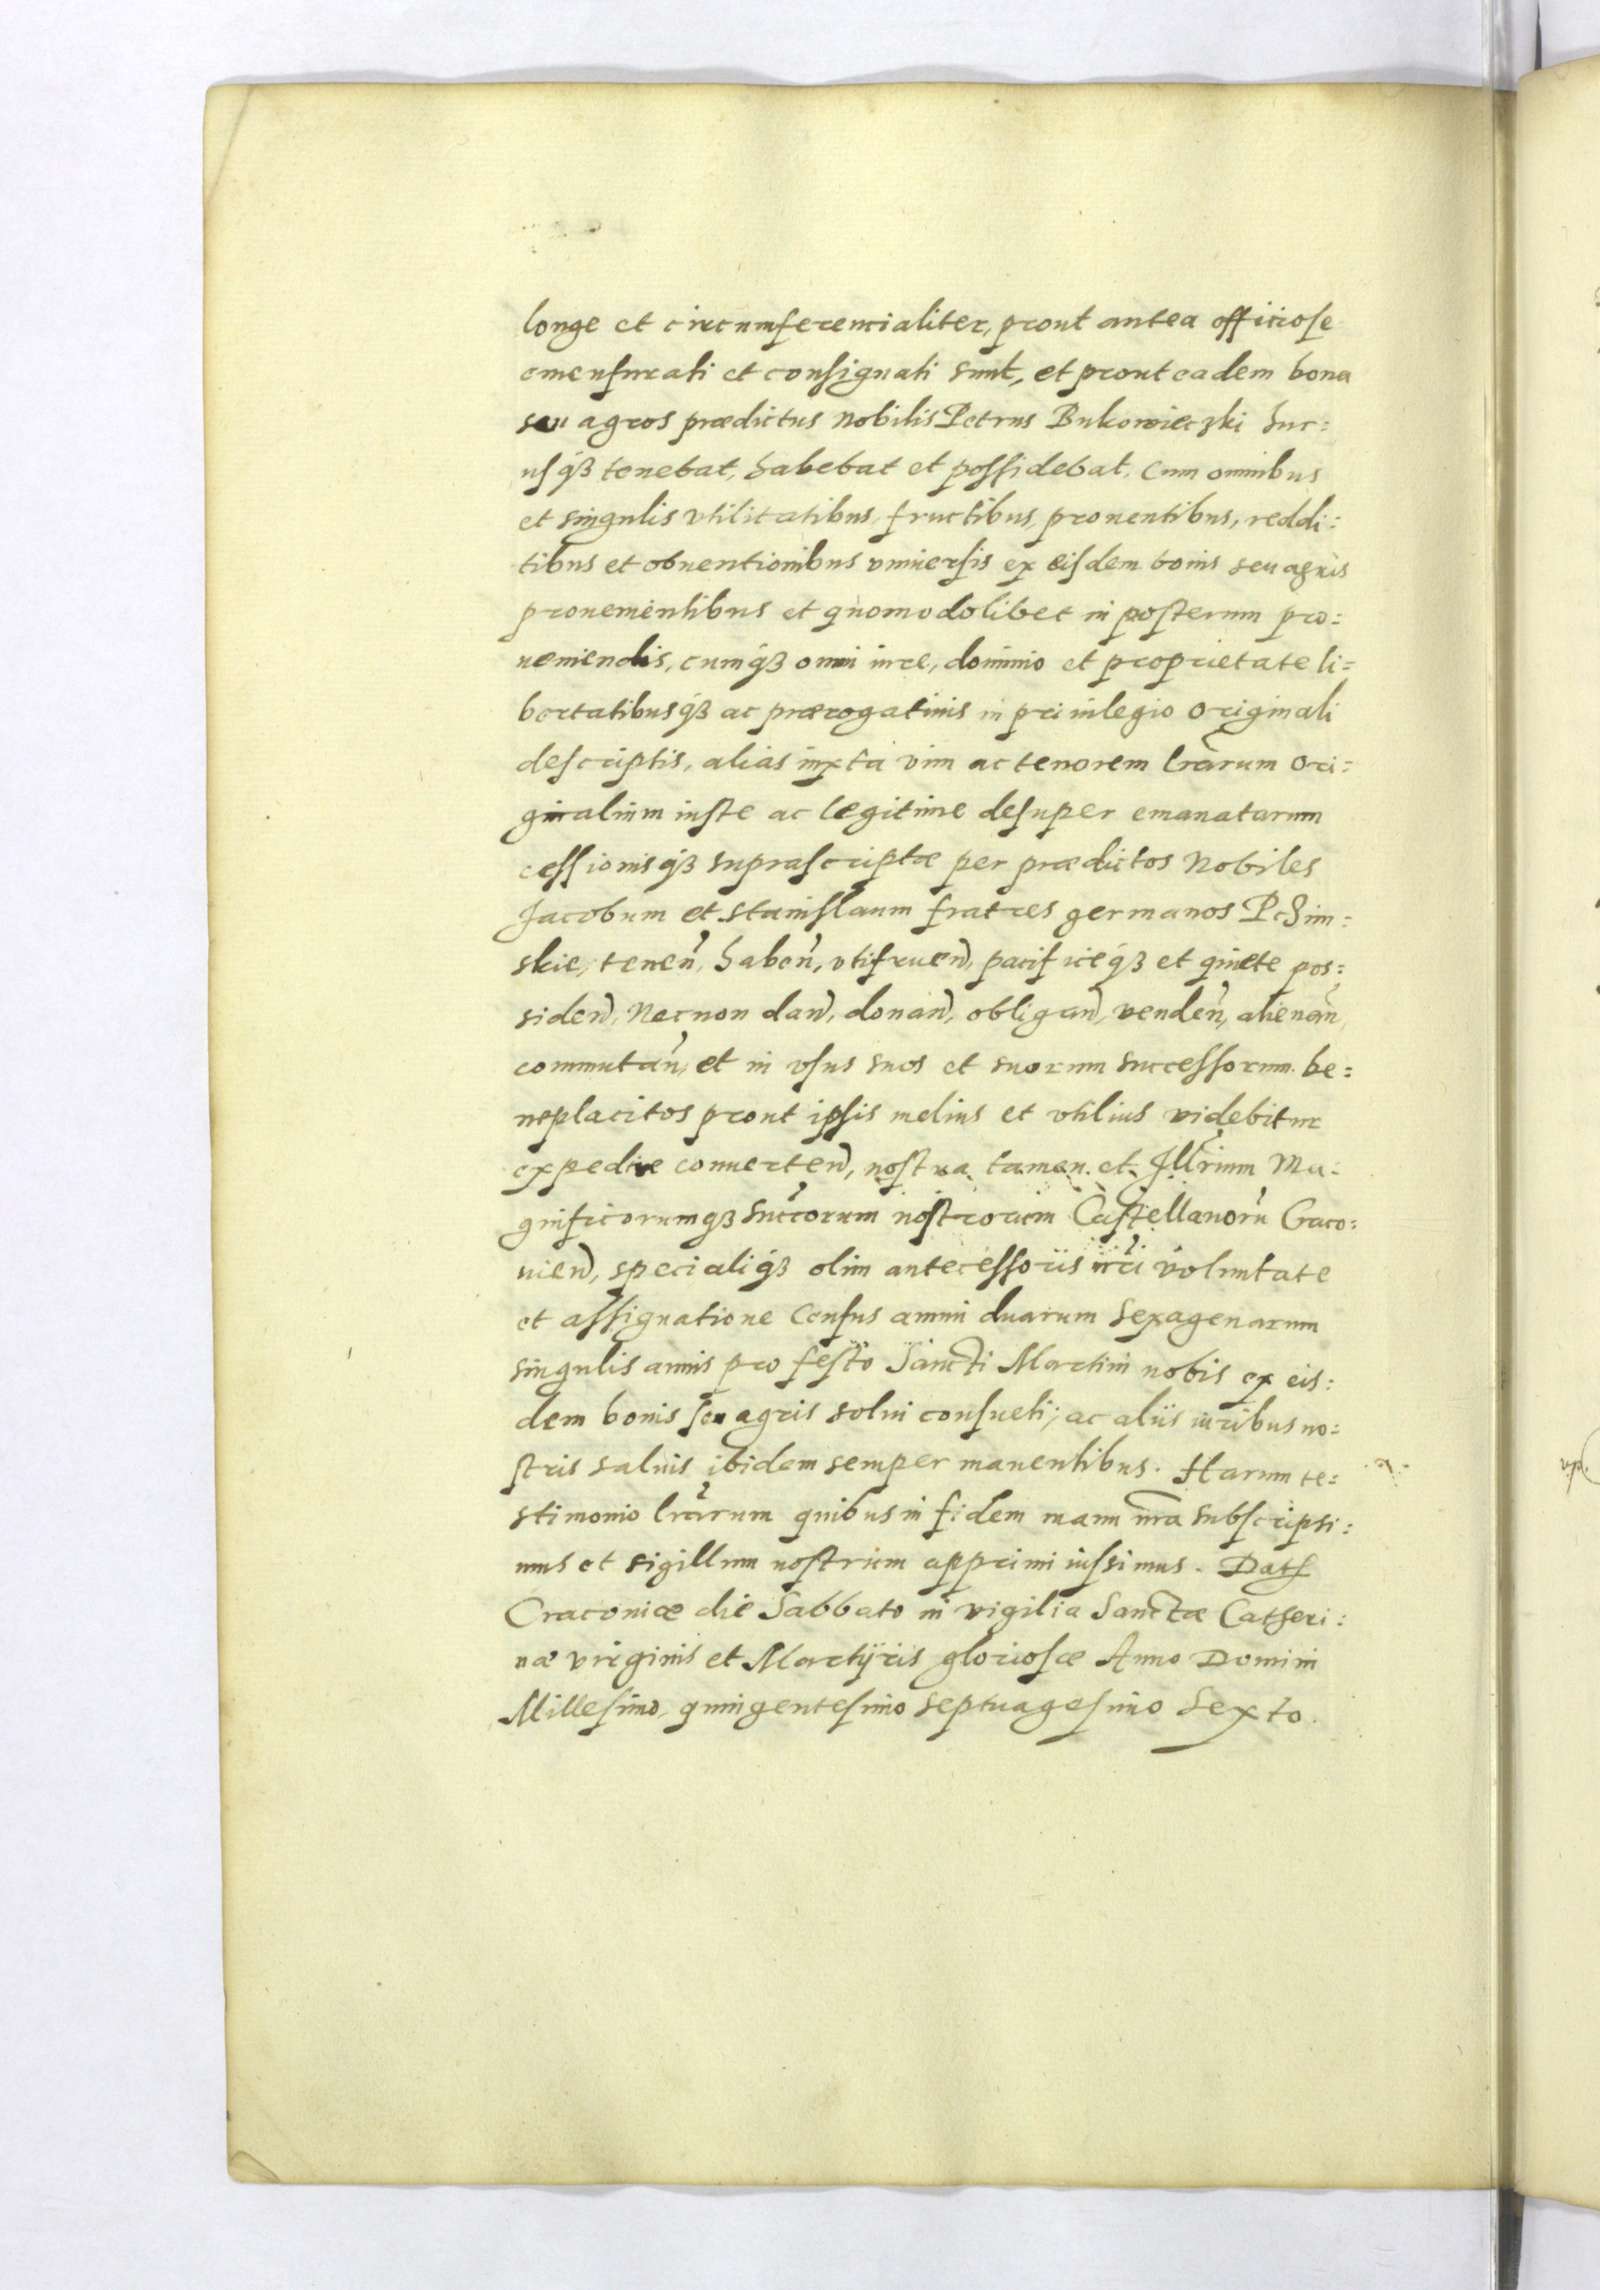 longe et circumferencialiter, prout antea officiose
emensurati et consignati sunt, et prout eadem bona
seu agros prædictus Nobilis Petrus Bukowieczki huc:
usq3 tenebat, habebat et possidebat. Cum omnibus
et singulis vtilitatibus, fructibus, prouentibus, reddi:
tibus et obuentionibus vniuersis ex eisdem bonis seu agris
prouenientibus et quomodolibet in posterum pro:
ueniendis, cumq3 omni iure, dominio et proprietate li:
bertatibusq3 ac prærogatiuis in priuilegio originali
descriptis, alias iuxta vim ac tenorem lrarum ori:
ginalium iuste ac legitime desuper emanatarum
cessionisq3 suprascriptæ per prædictos Nobiles
Jacobum et Stanislaum fratres germanos Pczim:
skie, tenen, haben, vtifruen, pacificeq3 et quiete pos:
siden, Necnon dan, donan, obligan, venden, alienan,
commutan, et in vsus suos et suorum successorum be:
neplacitos prout ipsis melius et vtilius videbitur
expedire conuerten, nostra tamen et Illrium Ma:
gnificorumq3 succorum nostrorum Castellanoru Craco:
uien, specialiq3 olim antecessoris nri voluntate
et assignatione Census annui duarum Sexagenarum
singulis annis pro festo Sancti Martini nobis ex eis:
dem bonis seu agris solui consueti; ac aliis iuribus no:
stris saluis ibidem semper manentibus. Harum te:
stimonio lrarum quibus in fidem manu nra subscripsi:
mus et sigillum nostrum apprimi iussimus. Dat
Cracouiæ die Sabbato in vigilia Sanctæ Catheri:
næ virginis et Martyris gloriosæ Anno Domini
Millesimo, quingentesimo septuagesimo Sexto.